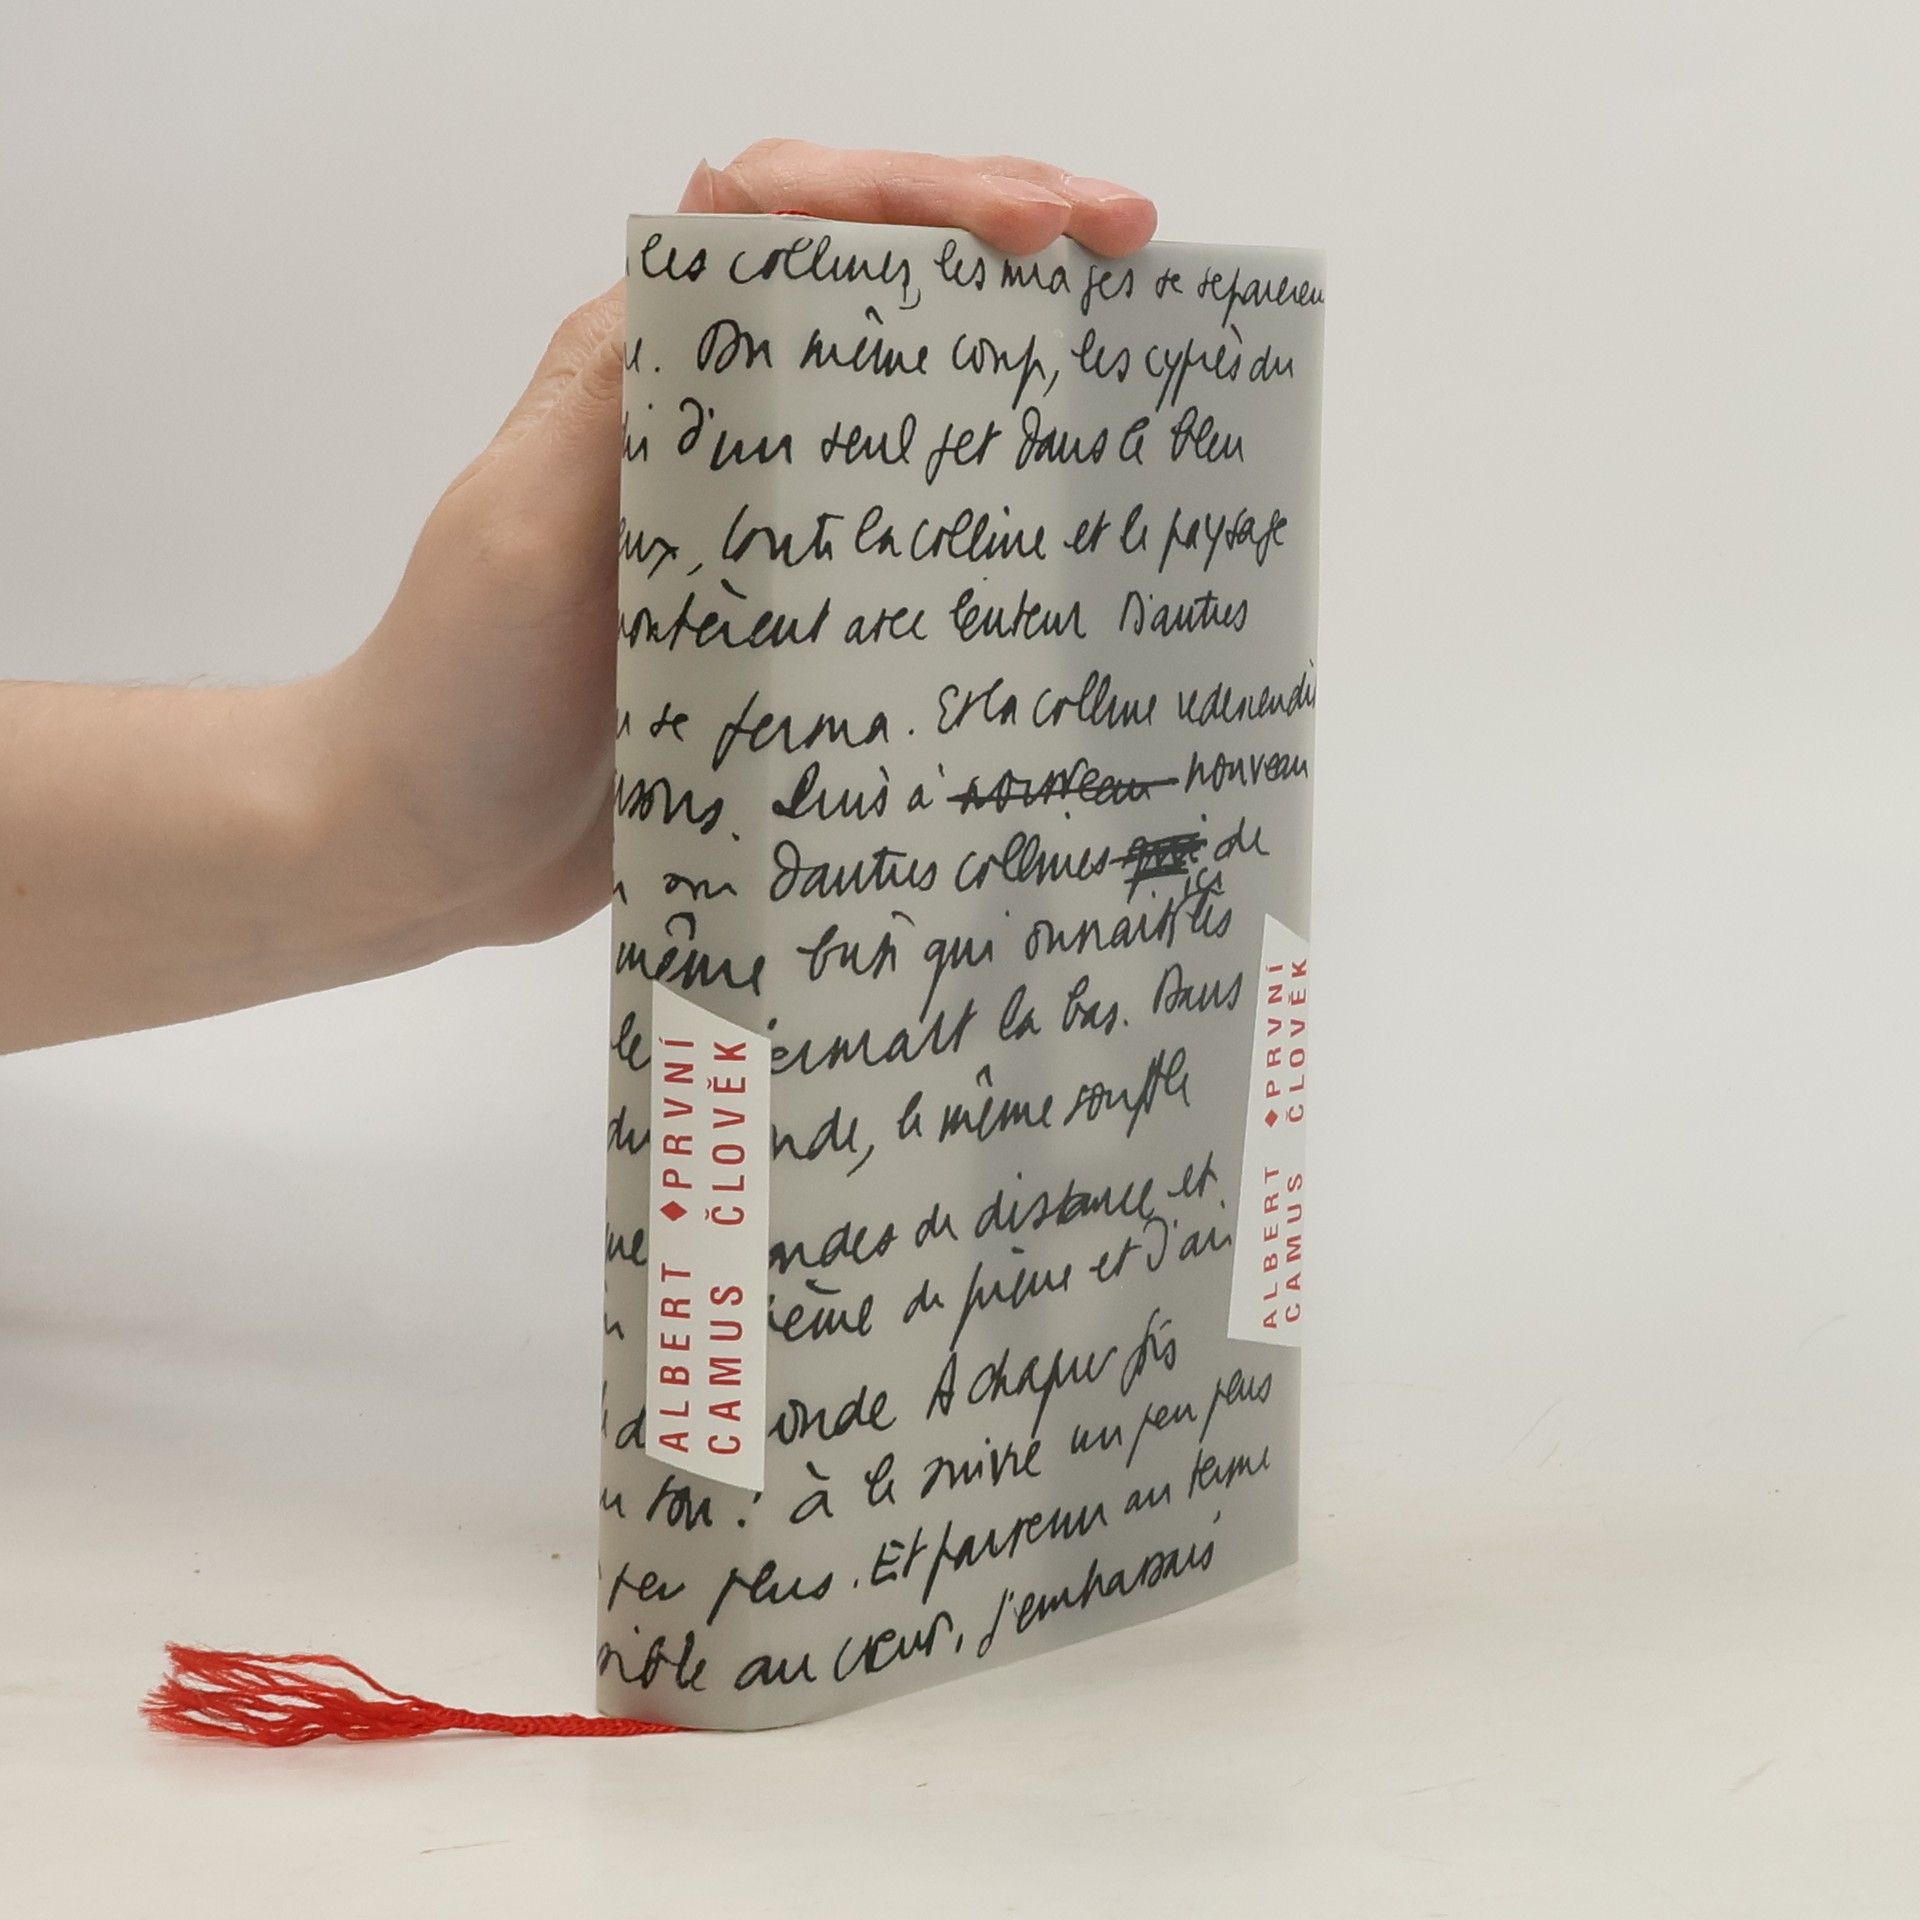 les collines, les nuages se separeren
Du même coup, les cyprès du
d'un seul jet dans le bleu
toute la colline et le paysage
avec lenteur D'autres
se ferma. Et la colline redescendit
Puis à nouveau nouveau
ou d'autres collines qui de
même qui ici les
le là bas. Dans
du nde, le même souffle
ndes de distance et
ième de pierre et d'air
onde A chaque fois
son : à le suivre un peu plus
peu plus. Et parvenu au terme
au cœur, j'embrassais
ALBERT ◆PRVNÍ
CAMUS ČLOVĚK
ALBERT ◆PRVNÍ
CAMUS ČLOVĚK